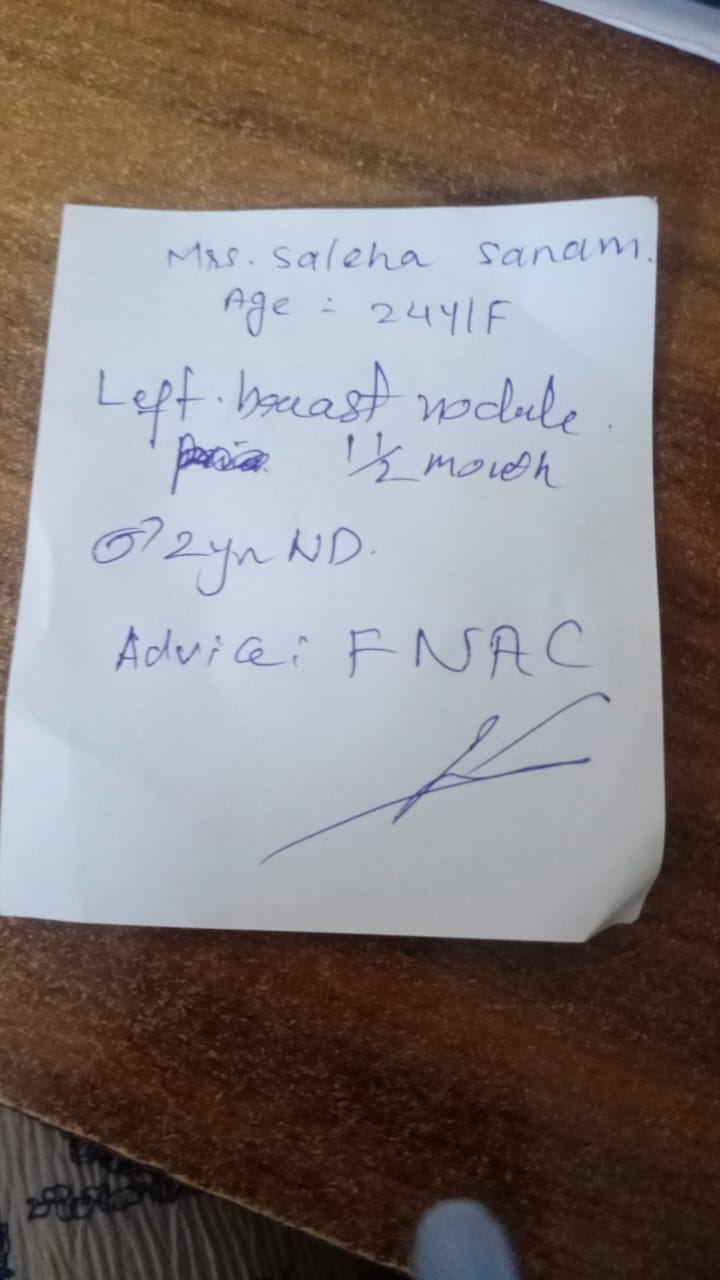 Mrs. Saleha Sanam.
Age : 24Y/F
Left. breast nodule.
1 1/2 month
♂ 2yr ND.
Advice: FNAC